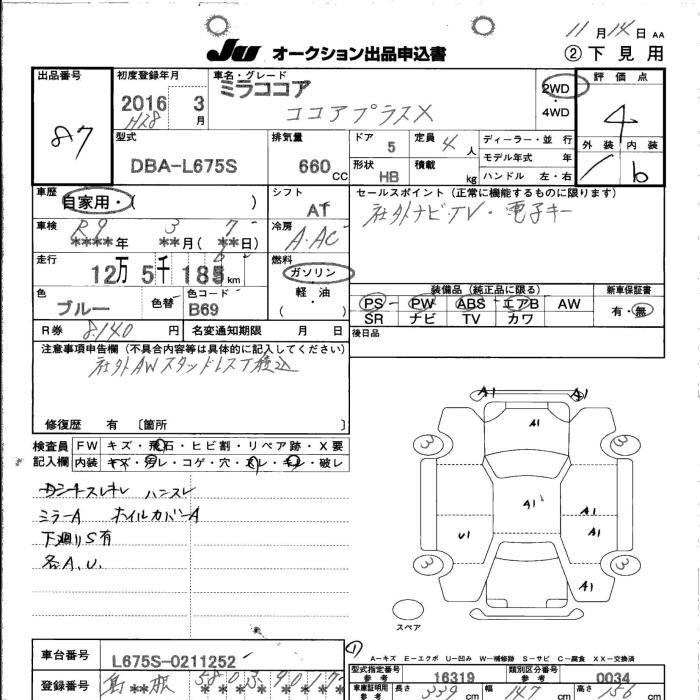 11月14日 AA
JU オークション出品申込書
② 下見用
出品番号
87
初度登録年月
2016 3月
H28
車名・グレード
ミラココア
ココアプラスX
2WD
・
4WD
評価点
4
外装 内装
b
型式
DBA-L675S
排気量
660 CC
ドア
5
定員
4人
形状
HB
積載
kg
ディーラー・並行
モデル年式 年
ハンドル 左・右
車歴
自家用・( )
シフト
AT
車検
R9 3 7
****年 **月(**日)
冷房
A・AC
セールスポイント(正常に機能するものに限ります)
社外ナビ・TV・電子キー
走行
12万5千185km
燃料
ガソリン
軽・油
( )
色
ブルー
色替
色コード
B69
装備品(純正品に限る)
PS PW ABS エアB AW
SR ナビ TV カワ
新車保証書
有・無
R券 8,140円
名変通知期限 月 日
後日品
注意事項申告欄(不具合内容等は具体的に記入してください)
社外AWスタッドレスT積込
修復歴 有 〔箇所 〕
検査員
記入欄
FW キズ・飛石・ヒビ割・リペア跡・X要
内装 キズ・汚レ・コゲ・穴・スレ・キレ・破レ
ハンスレ
ミラーA ホイルカバーA
下廻りS有
各A.U.
A1 A1
A1
3 3
A1
A1
U1
A1
3 3
A1
スペア
A-キズ E-エクボ U-凹 W-補修跡 S-サビ C-腐食 XX-交換済
車台番号
L675S-0211252
型式指定番号
参考
16319
類別区分番号
参考
0034
登録番号
島**根 580 3 9017
車庫証明用
参考
長さ 339cm 幅 147cm 高さ
cm